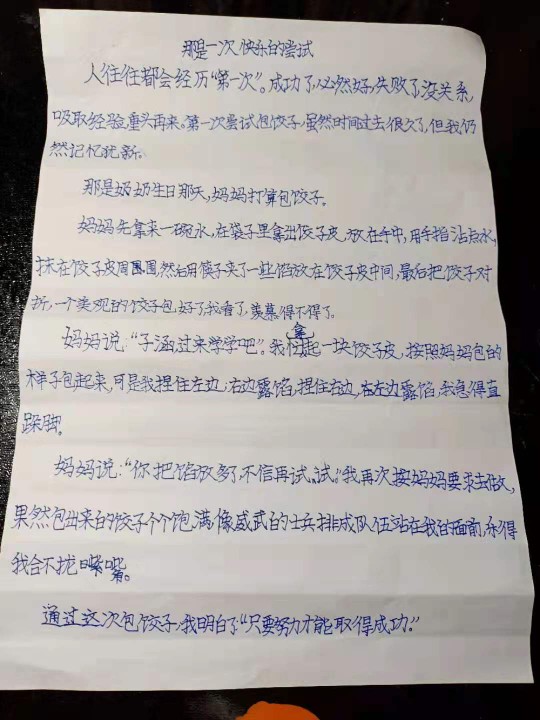 那是一次快乐的尝试
人往往都会经历“第一次”。成功了,必然好,失败了没关系,
吸取经验重头再来。第一次尝试包饺子,虽然时间过去很久了,但我仍
然记忆犹新。
那是奶奶生日那天,妈妈打算包饺子。
妈妈先拿来一碗水,在袋子里拿出饺子皮,放在手中,用手指沾点水,
抹在饺子皮周围,然后用筷子夹了一些馅放在饺子皮中间,最后把饺子对
折,一个美观的饺子包,好了,我看了,羡慕得不得了。
妈妈说:“子涵过来学学吧”。我拿起一块饺子皮,按照妈妈包的
样子包起来,可是我捏住左边,右边露馅,捏住右边,左边露馅,我急得直
跺脚。
妈妈说:“你把馅放多了,不信再试试。”我再次按妈妈要求去做,
果然包出来的饺子个个饱满,像威武的士兵排成队伍站在我的面前,乐得
我合不拢嘴。
通过这次包饺子,我明白了“只要努力才能取得成功.”